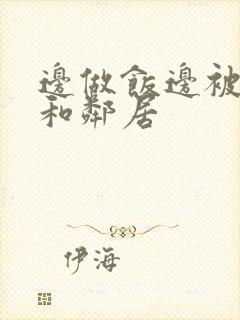 邊做飯邊被
和鄰居
伊海